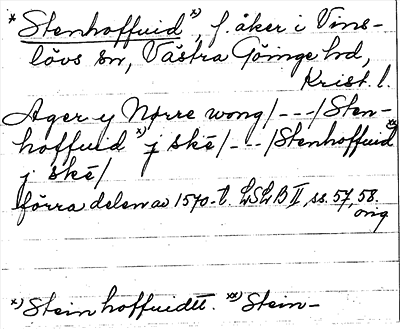 * Stenhoffuid *), f. åker i Vins-
lövs sn, Västra Göinge hd,
Krist. l.
Ager y Nørre wong/---/Sten-
hoffuid *) j ské/---/Stenhoffuid **)
j ské/
förra delen av 1570-t. LSLB II, ss. 57, 58.
orig
*) Steinhoffuidtt. **) Stein-